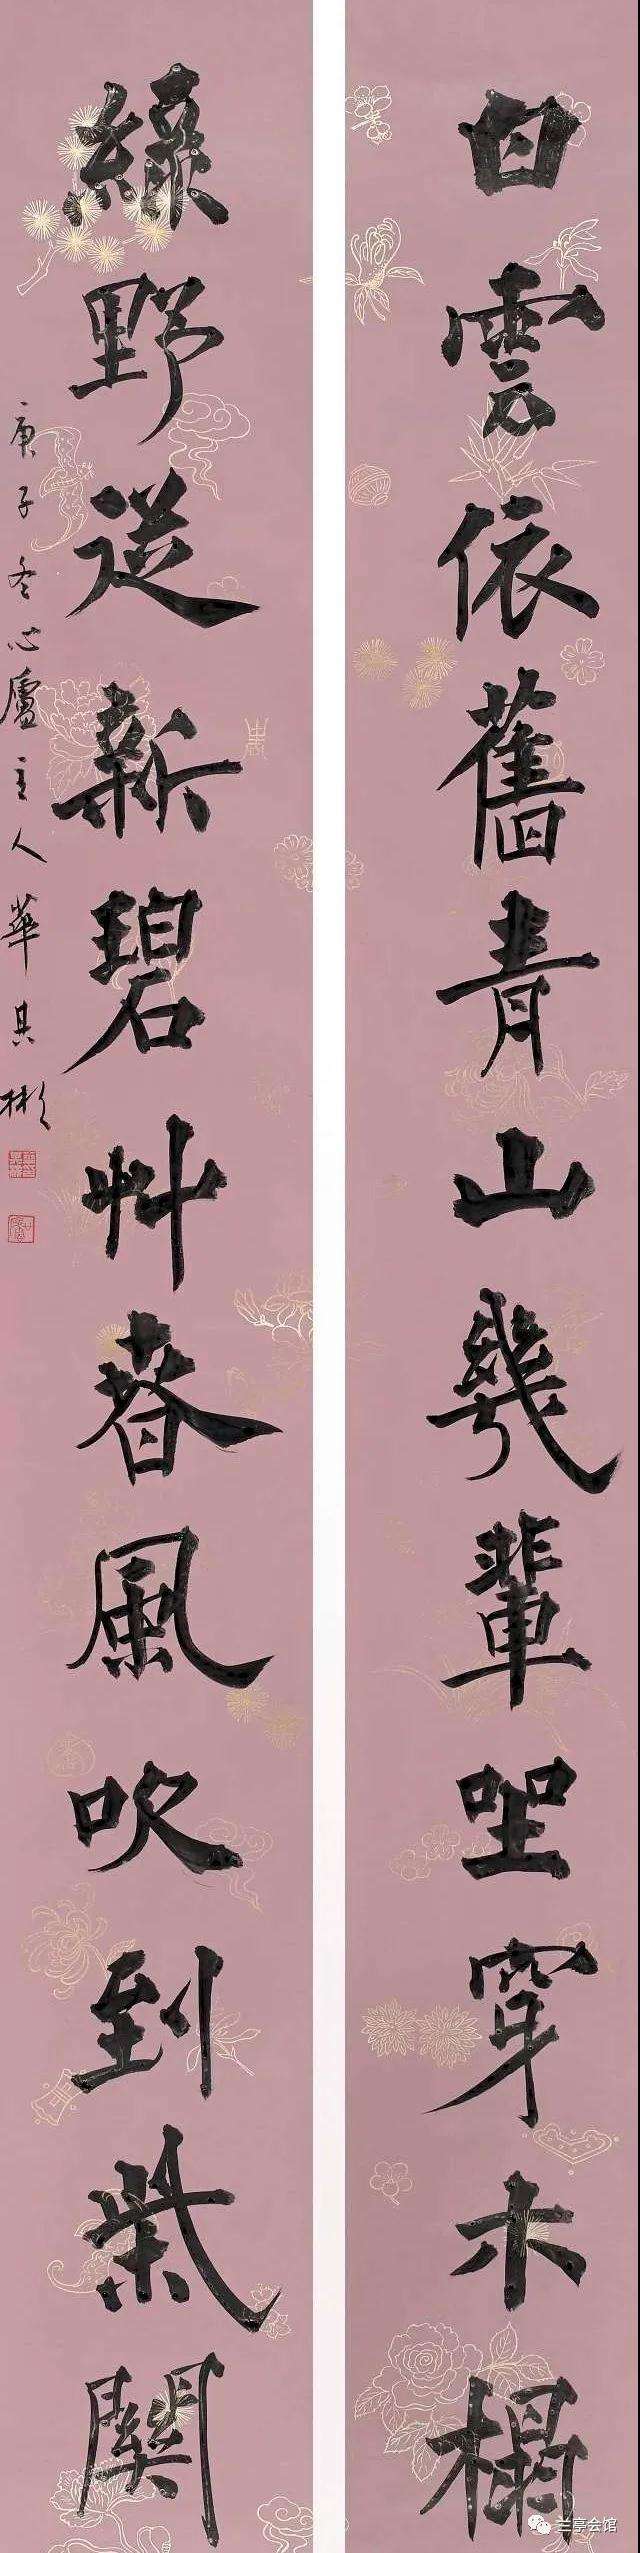 白雲依舊青山幾輩坐穿木榻
綠野送新碧艸春風吹到柴關
庚子冬心廬主人華其彬
兰亭会馆